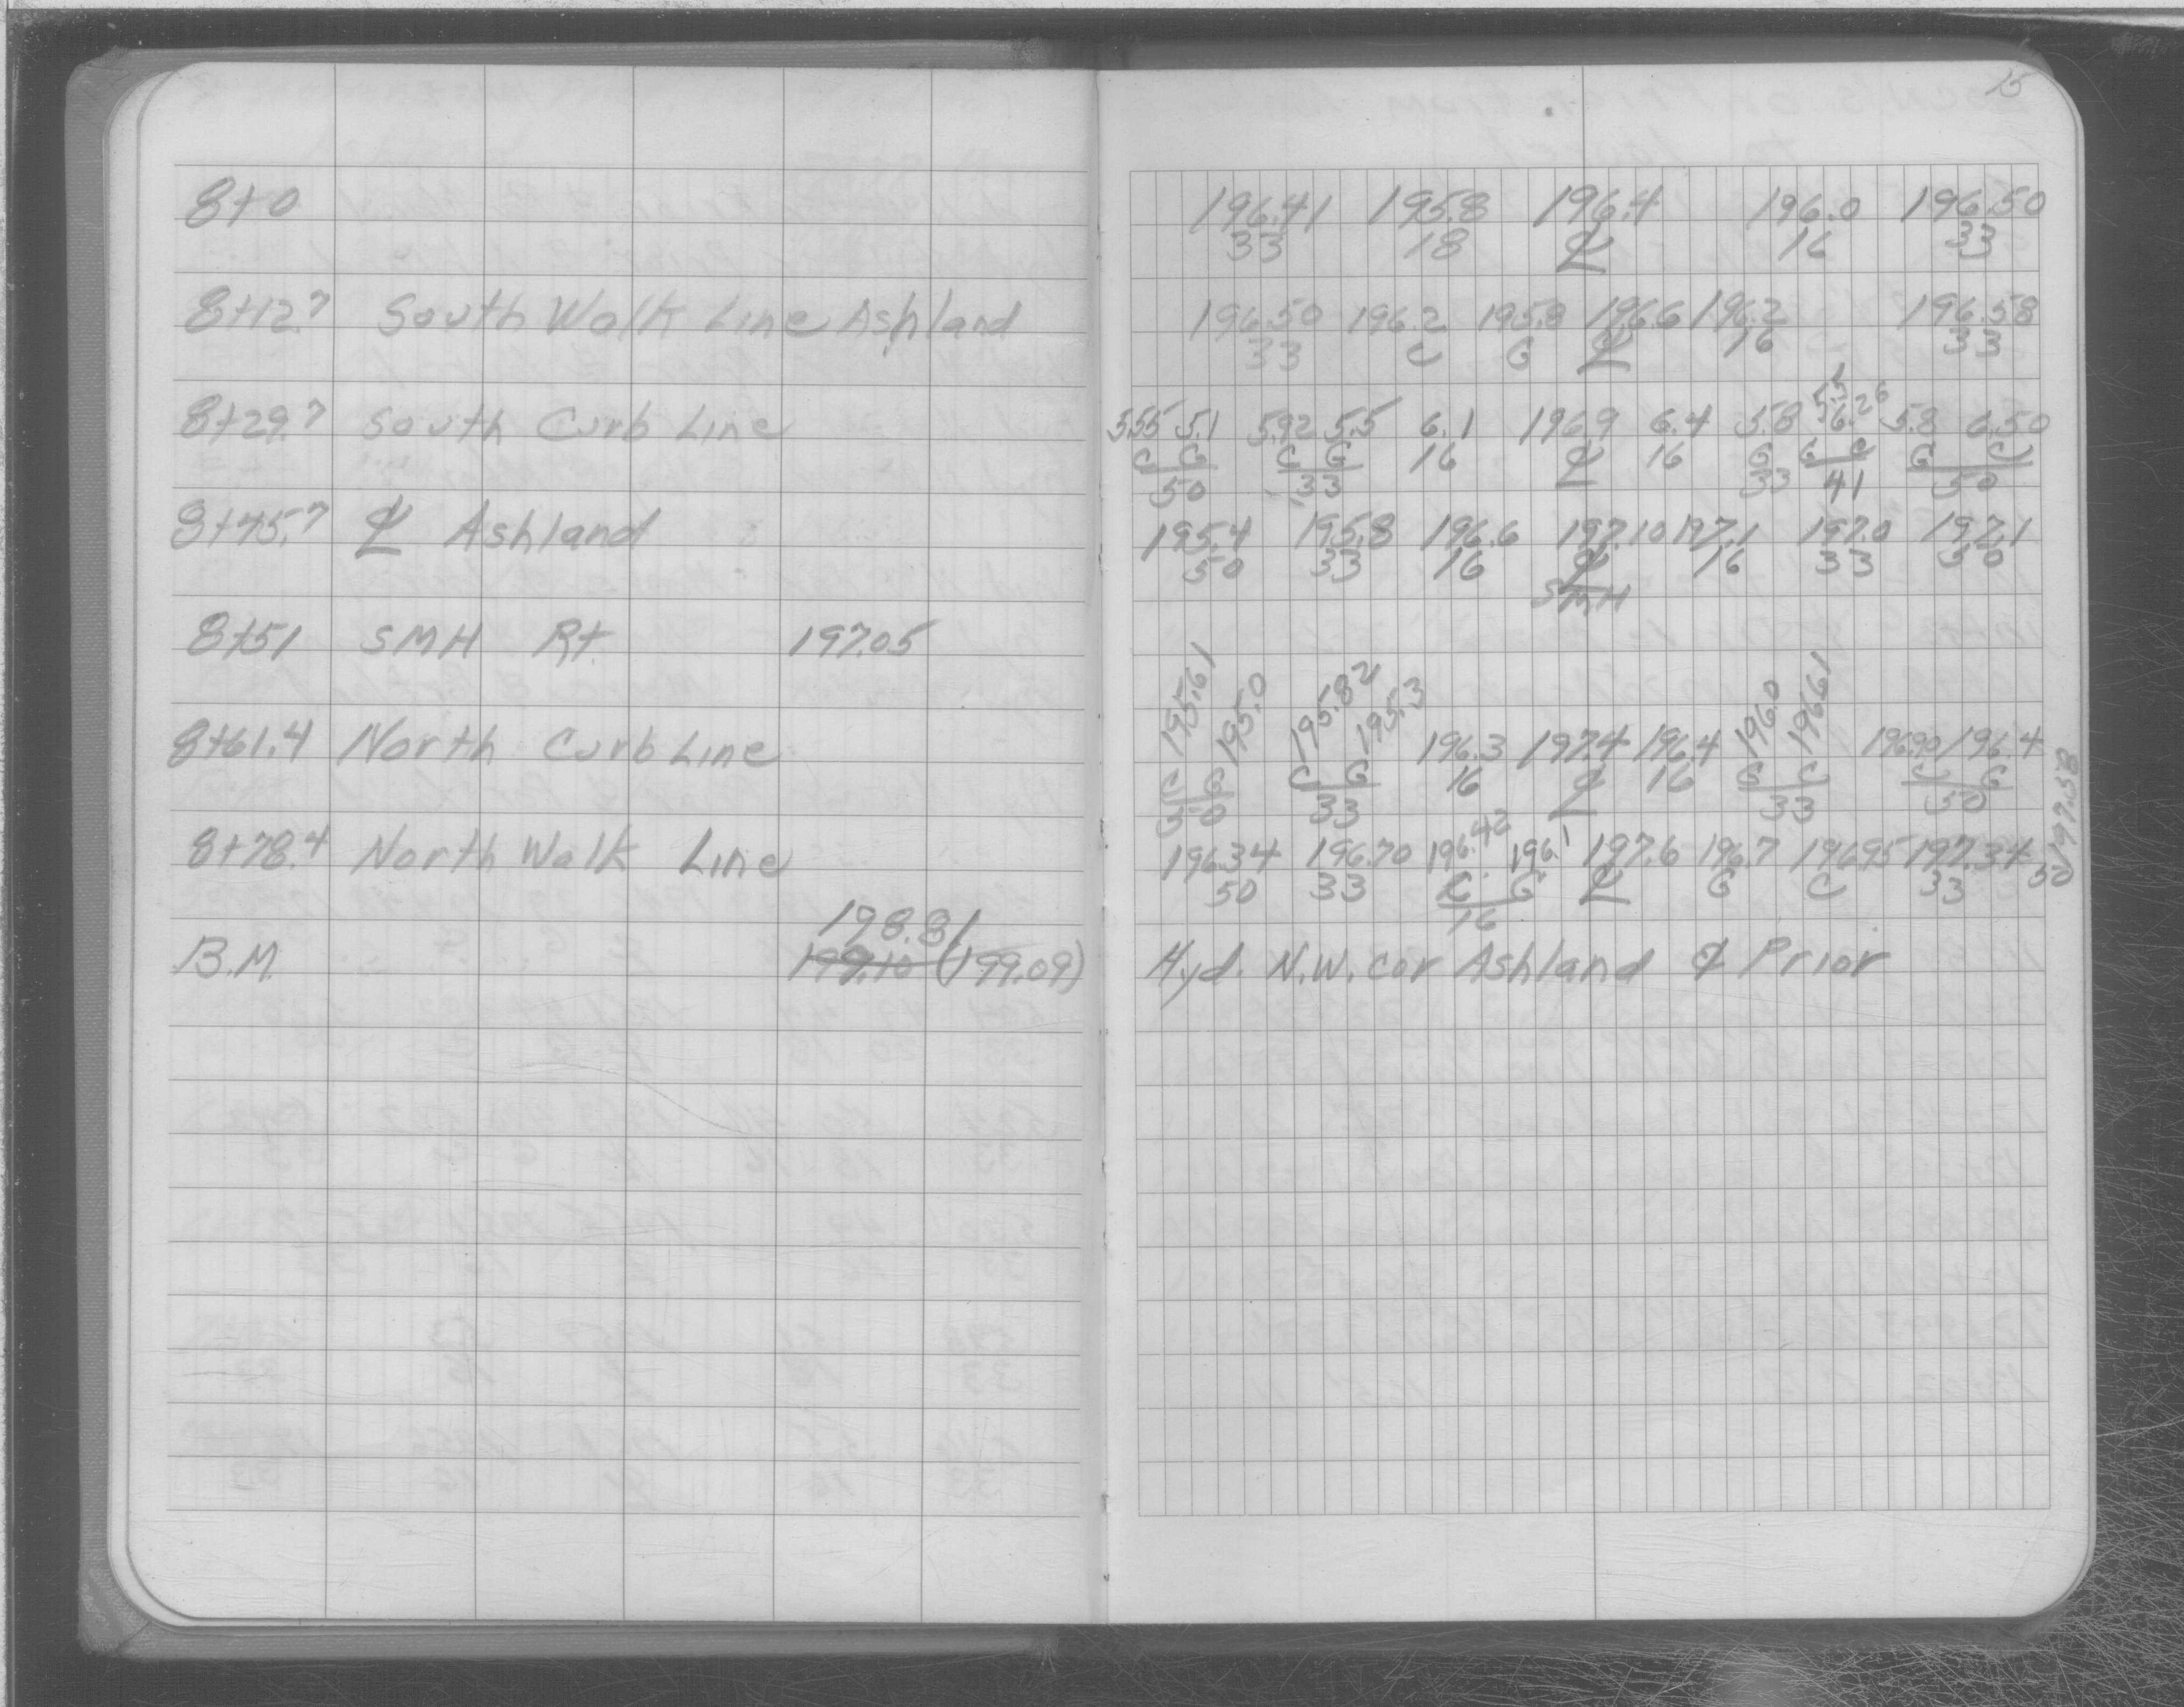 15
8+0 196.41 195.8 196.4 196.0 196.50
33 18 ℄ 16 33
8+12.7 South Walk Line Ashland 196.50 196.2 195.8 196.6 196.2 196.58
33 C G ℄ 16 33
8+29.7 South Curb Line 5.55 5.1 5.92 5.5 6.1 196.9 6.4 5.8 5.5 6.26 5.8 6.50
C G C G 16 ℄ 16 G G C G C
50 33 33 41 50
8+45.7 ℄ Ashland 195.4 195.8 196.6 197.10 197.1 197.0 197.1
50 33 16 ℄ 16 33 50
SMH
8+51 SMH Rt. 197.05
195.61 195.0 195.82 195.3 196.0 196.61
8+61.4 North Curb Line 196.3 197.4 196.4 196.90 196.4
C G C G 16 ℄ 16 G C C G
50 33 33 50
8+78.4 North Walk Line 196.34 196.70 196.42 196.1 197.6 196.7 196.95 197.34 197.58
50 33 C G ℄ G C 33 50
16
198.81
B.M. 199.10 (199.09) Hyd. N.W. cor Ashland & Prior